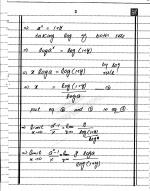 2
⇒ a^x = 1+y
taking log of both sides
⇒ log a^x = log(1+y)
⇒ x log a = log(1+y) by log rule
⇒ x = log(1+y) / log a
put eq and in eq
⇒ limit x→0 a^x-1 / x = lim y→0 y / log(1+y) / log a
⇒ limit x→0 a^x-1 / x = lim y→0 y log a / log(1+y)